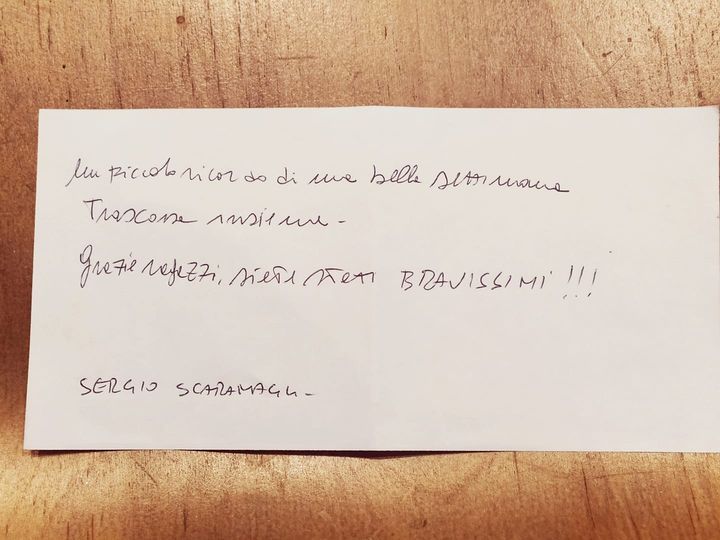 Un piccolo ricordo di una bella settimana
Trascorsa insieme -
Grazie ragazzi, siete stati BRAVISSIMI !!!
SERGIO SCARAMAGLI -